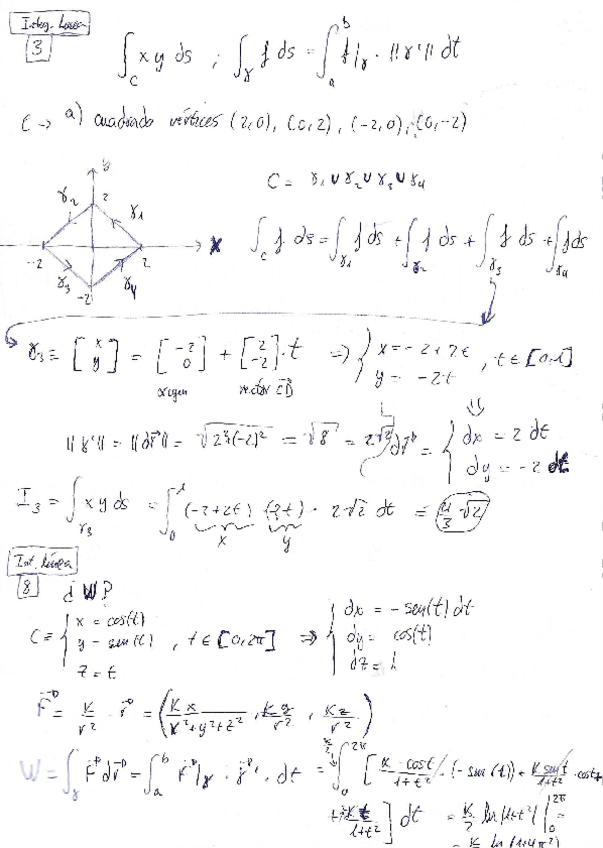 Integ. Línea
3
∫_C x y ds ; ∫_γ f ds = ∫_a^b f|_γ · ||γ'|| dt
C → a) cuadrado vértices (2,0), (0,2), (-2,0), (0,-2)
C = γ1 ∪ γ2 ∪ γ3 ∪ γ4
y
γ2 2 γ1
-2 2 x
γ3 -2 γ4
∫_C f ds = ∫_γ1 f ds + ∫_γ2 f ds + ∫_γ3 f ds + ∫_γ4 f ds
γ3 ≡ [x y] = [-2 0] + [2 -2] · t ⇒ { x = -2+2t y = -2t , t ∈ [0,1]
origen vector CD
||γ'|| = ||dr|| = √(2²+(-2)²) = √8 = 2√2 dr = { dx = 2 dt dy = -2 dt
I3 = ∫_γ3 x y ds = ∫_0^1 (-2+2t) (-2t) · 2√2 dt = 4/3 √2
x y
Int. Línea
8
¿W?
C ≡ { x = cos(t) y = sen(t) z = t , t ∈ [0,2π] ⇒ { dx = -sen(t) dt dy = cos(t) dz = 1
F = K/r² · r = ( Kx/(x²+y²+z²) , Ky/r² , Kz/r² )
W = ∫_γ F dr = ∫_a^b F|_γ · γ' · dt = ∫_0^2π [ K cost/(1+t²) · (-sen(t)) + K sent/(1+t²) · cost +
+ Kt/(1+t²) ] dt = K/2 ln(1+t²) |_0^2π =
= K/2 ln(1+4π²)